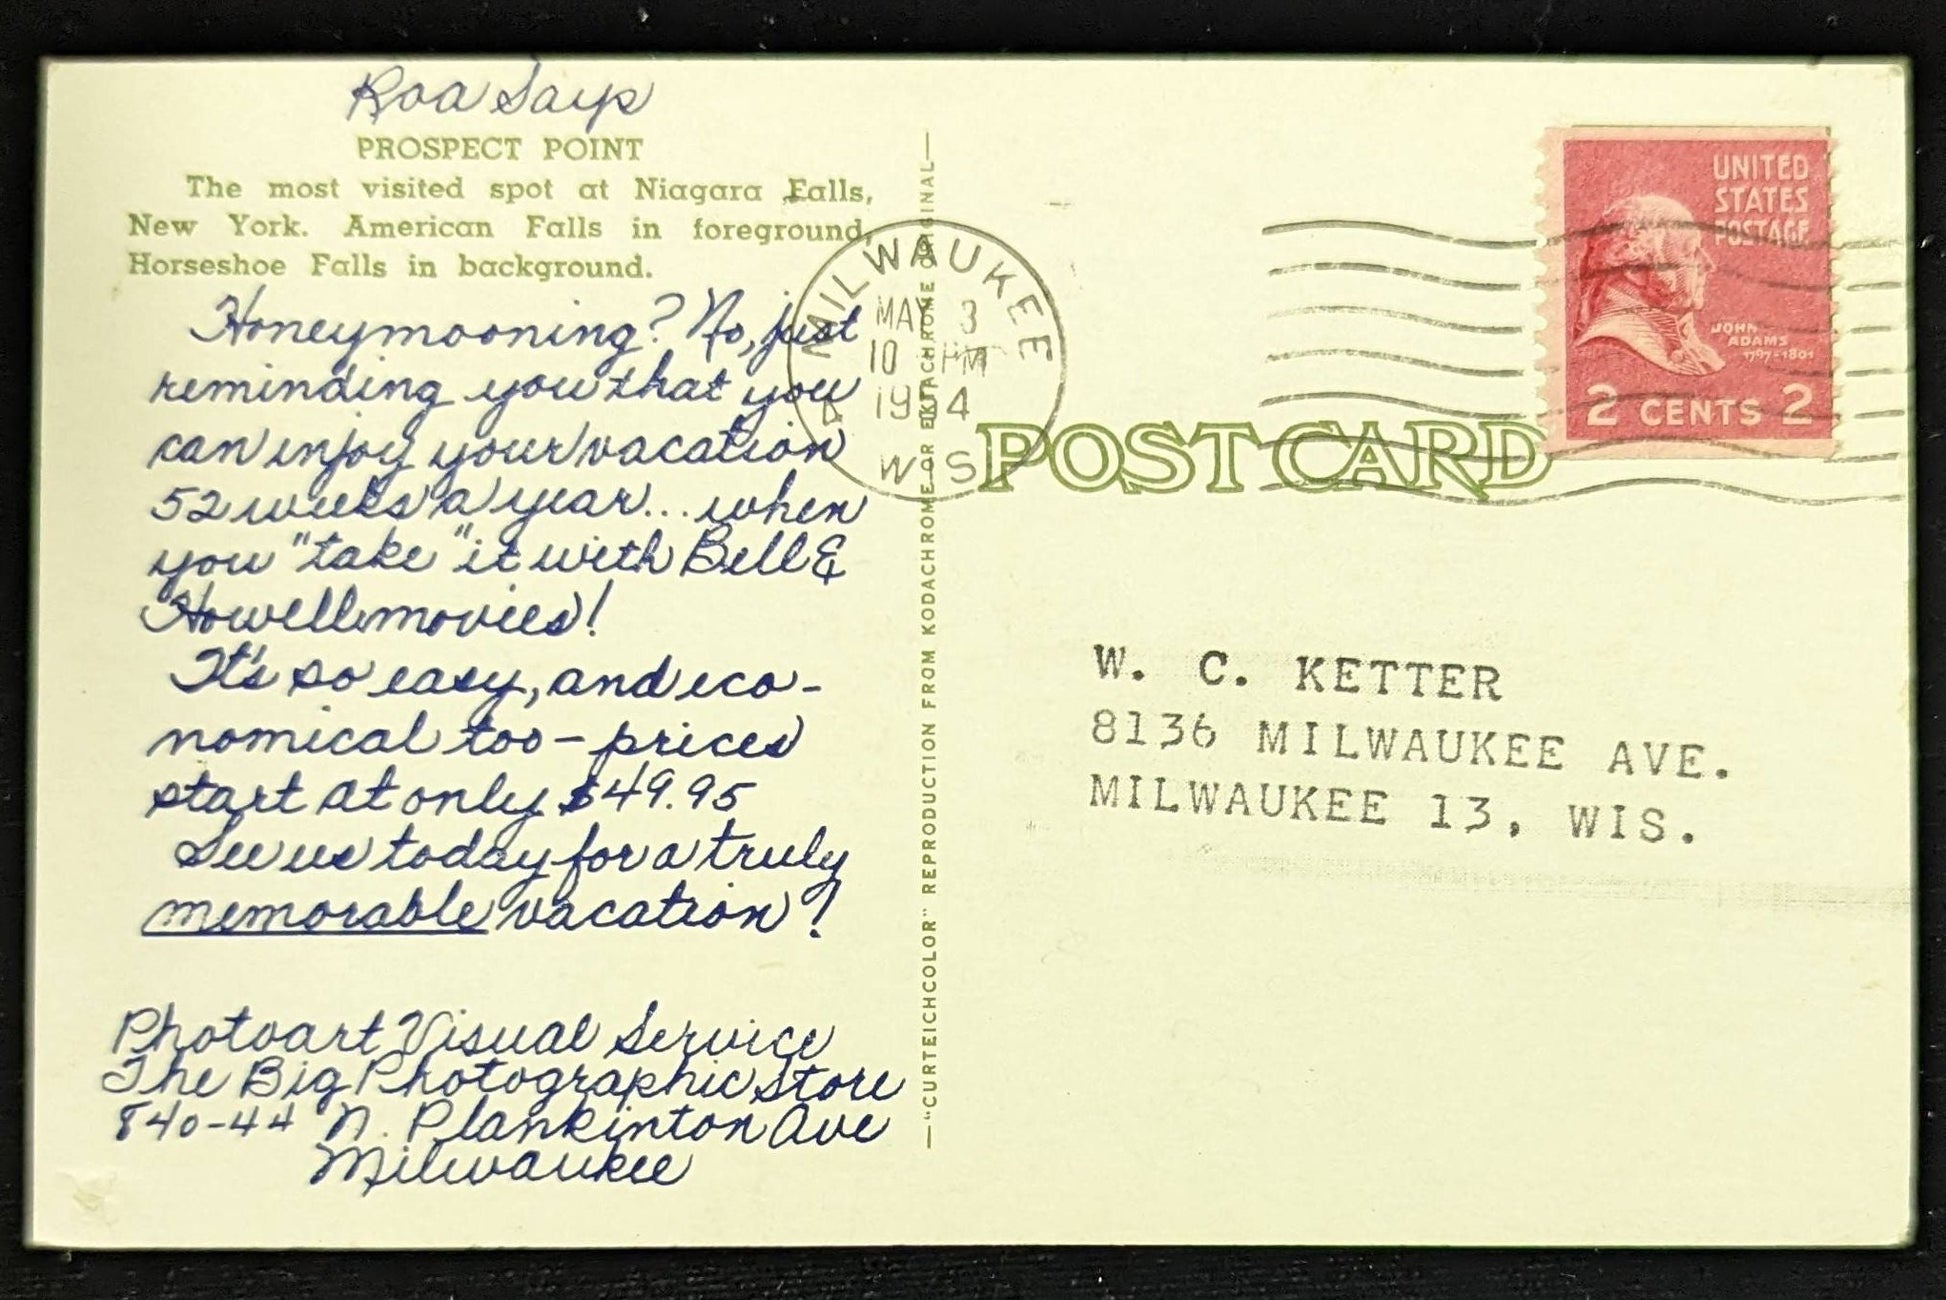 Roa Says
PROSPECT POINT
The most visited spot at Niagara Falls,
New York. American Falls in foreground,
Horseshoe Falls in background.
Honeymooning? No, just
reminding you that you
can enjoy your vacation
52 weeks a year... when
you "take" it with Bell &
Howell movies!
It's so easy, and eco-
nomical too - prices
start at only $49.95
See us today for a truly
memorable vacation!
Photoart Visual Service
The Big Photographic Store
840-44 N. Plankinton Ave
Milwaukee
—"CURTEICHCOLOR" REPRODUCTION FROM KODACHROME OR EKTACHROME ORIGINAL—
MILWAUKEE
MAY 3
10 PM
WIS
POST CARD
UNITED
STATES
POSTAGE
JOHN
ADAMS
1797-1801
2 CENTS 2
W. C. KETTER
8136 MILWAUKEE AVE.
MILWAUKEE 13, WIS.